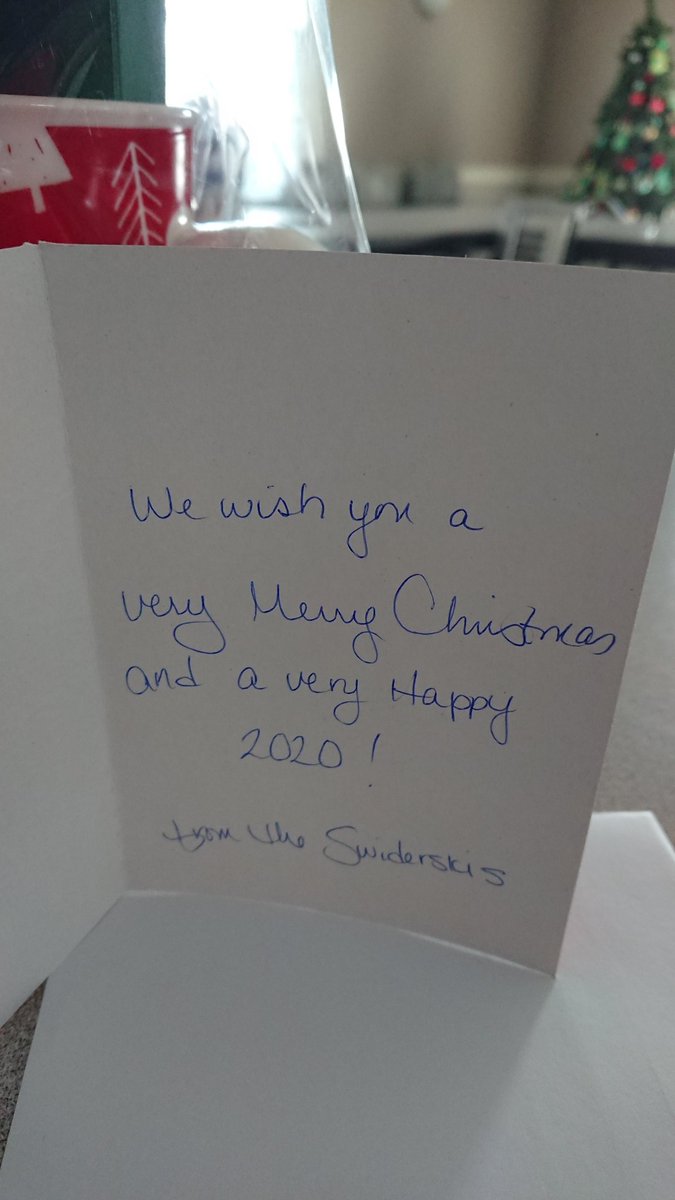 We wish you a
very Merry Christmas
and a very Happy
2020!
from the Swiderskis